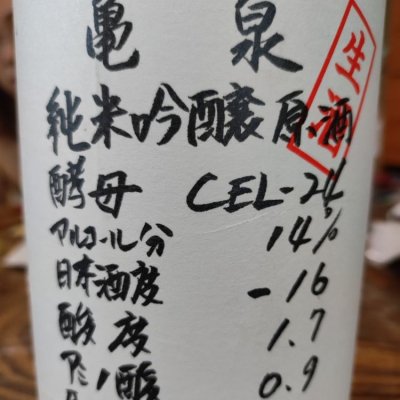 亀泉
生酒
純米吟醸原酒
酵母 CEL-24
アルコール分 14%
日本酒度 -16
酸度 1.7
アミノ酸 0.9